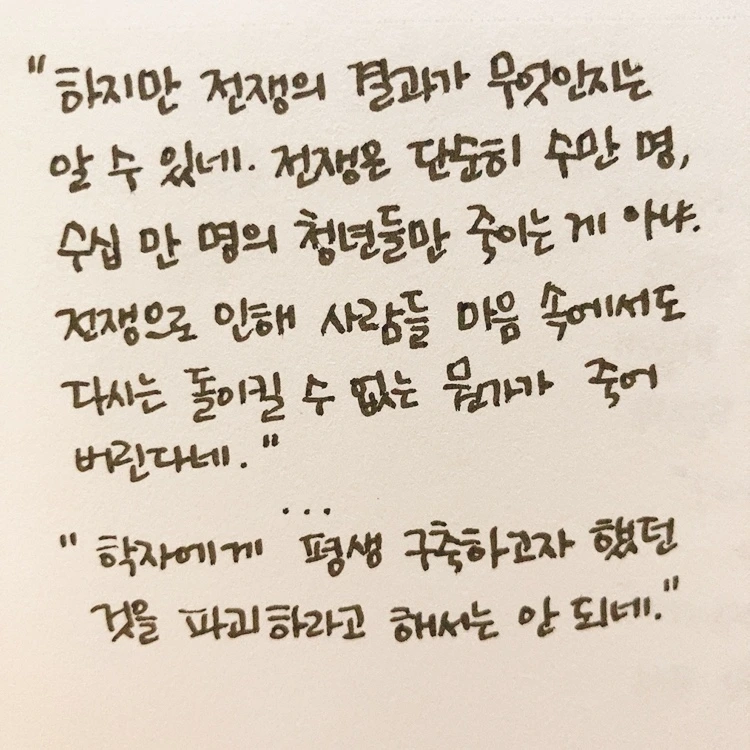 "하지만 전쟁의 결과가 무엇인지는
알 수 있네. 전쟁은 단순히 수만 명,
수십 만 명의 청년들만 죽이는 게 아냐.
전쟁으로 인해 사람들 마음 속에서도
다시는 돌이킬 수 없는 뭔가가 죽어
버린다네."
...
"학자에게 평생 구축하고자 했던
것을 파괴하라고 해서는 안 되네."